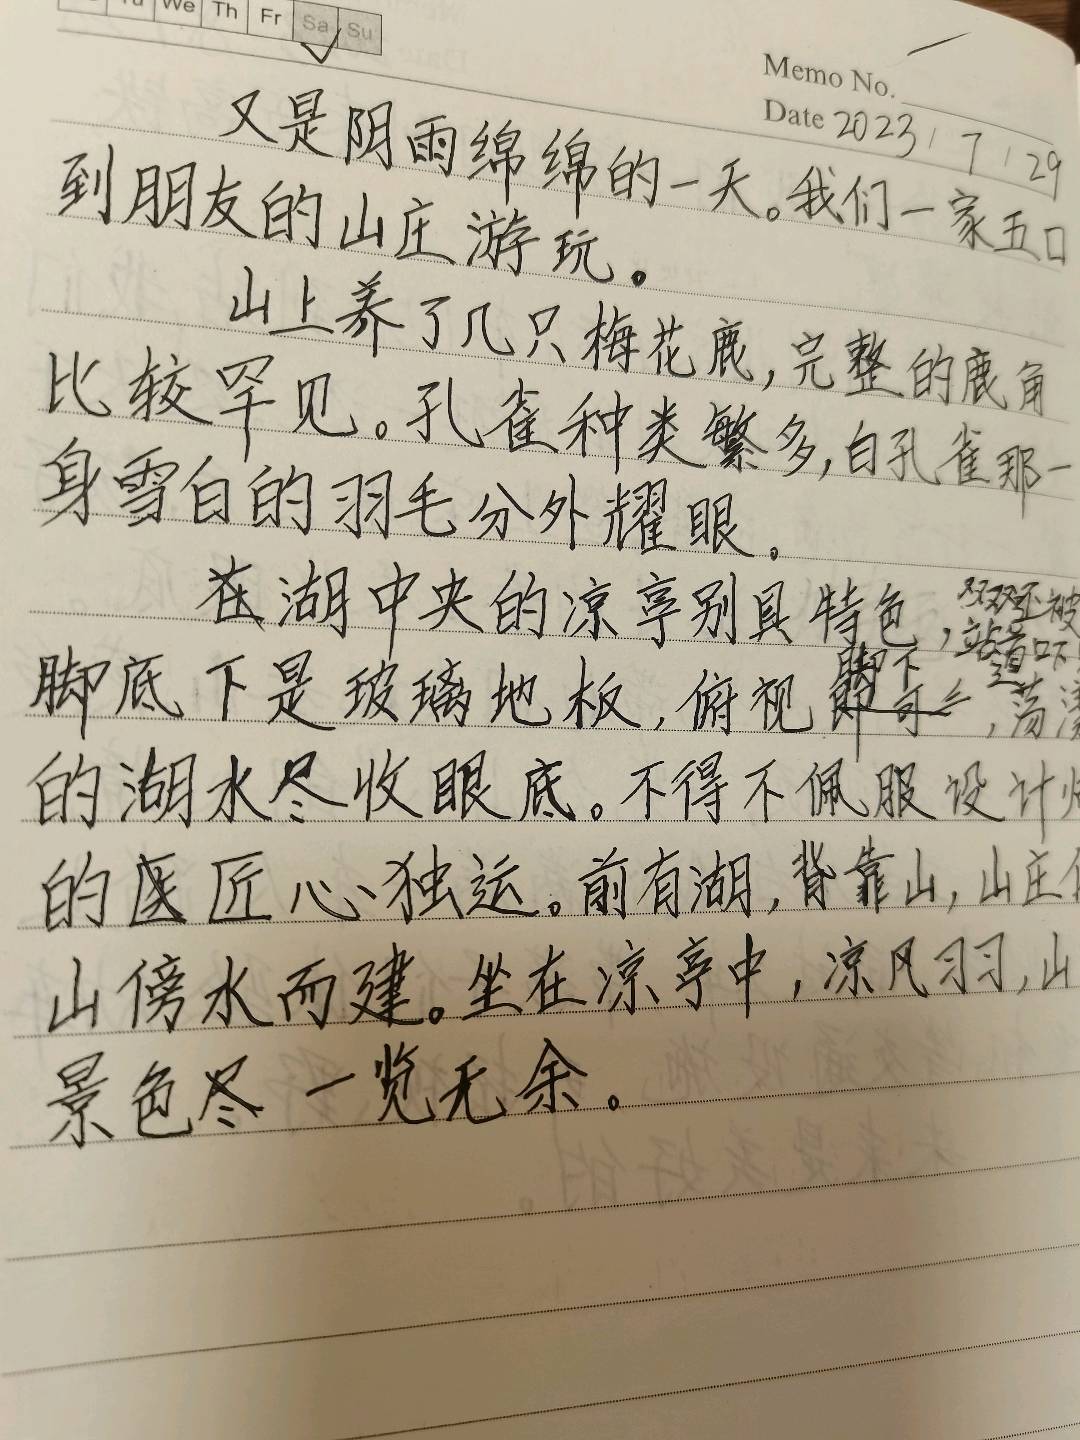 We Th Fr Sa Su
Memo No.
Date 2023 / 7 / 29
又是阴雨绵绵的一天。我们一家五口
到朋友的山庄游玩。
山上养了几只梅花鹿，完整的鹿角
比较罕见。孔雀种类繁多，白孔雀那一
身雪白的羽毛分外耀眼。
在湖中央的凉亭别具特色，
双双还被
站着
脚底下是玻璃地板，俯视脚下，荡
的湖水尽收眼底。不得不佩服设计
的匠心独运。前有湖，背靠山，山庄
山傍水而建。坐在凉亭中，凉风习习，山
景色尽一览无余。